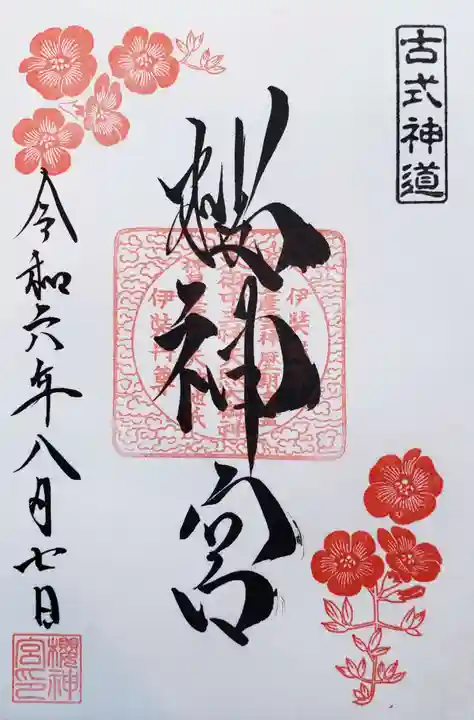 古式神道
櫻神宮
令和六年八月七日
櫻神
宮印